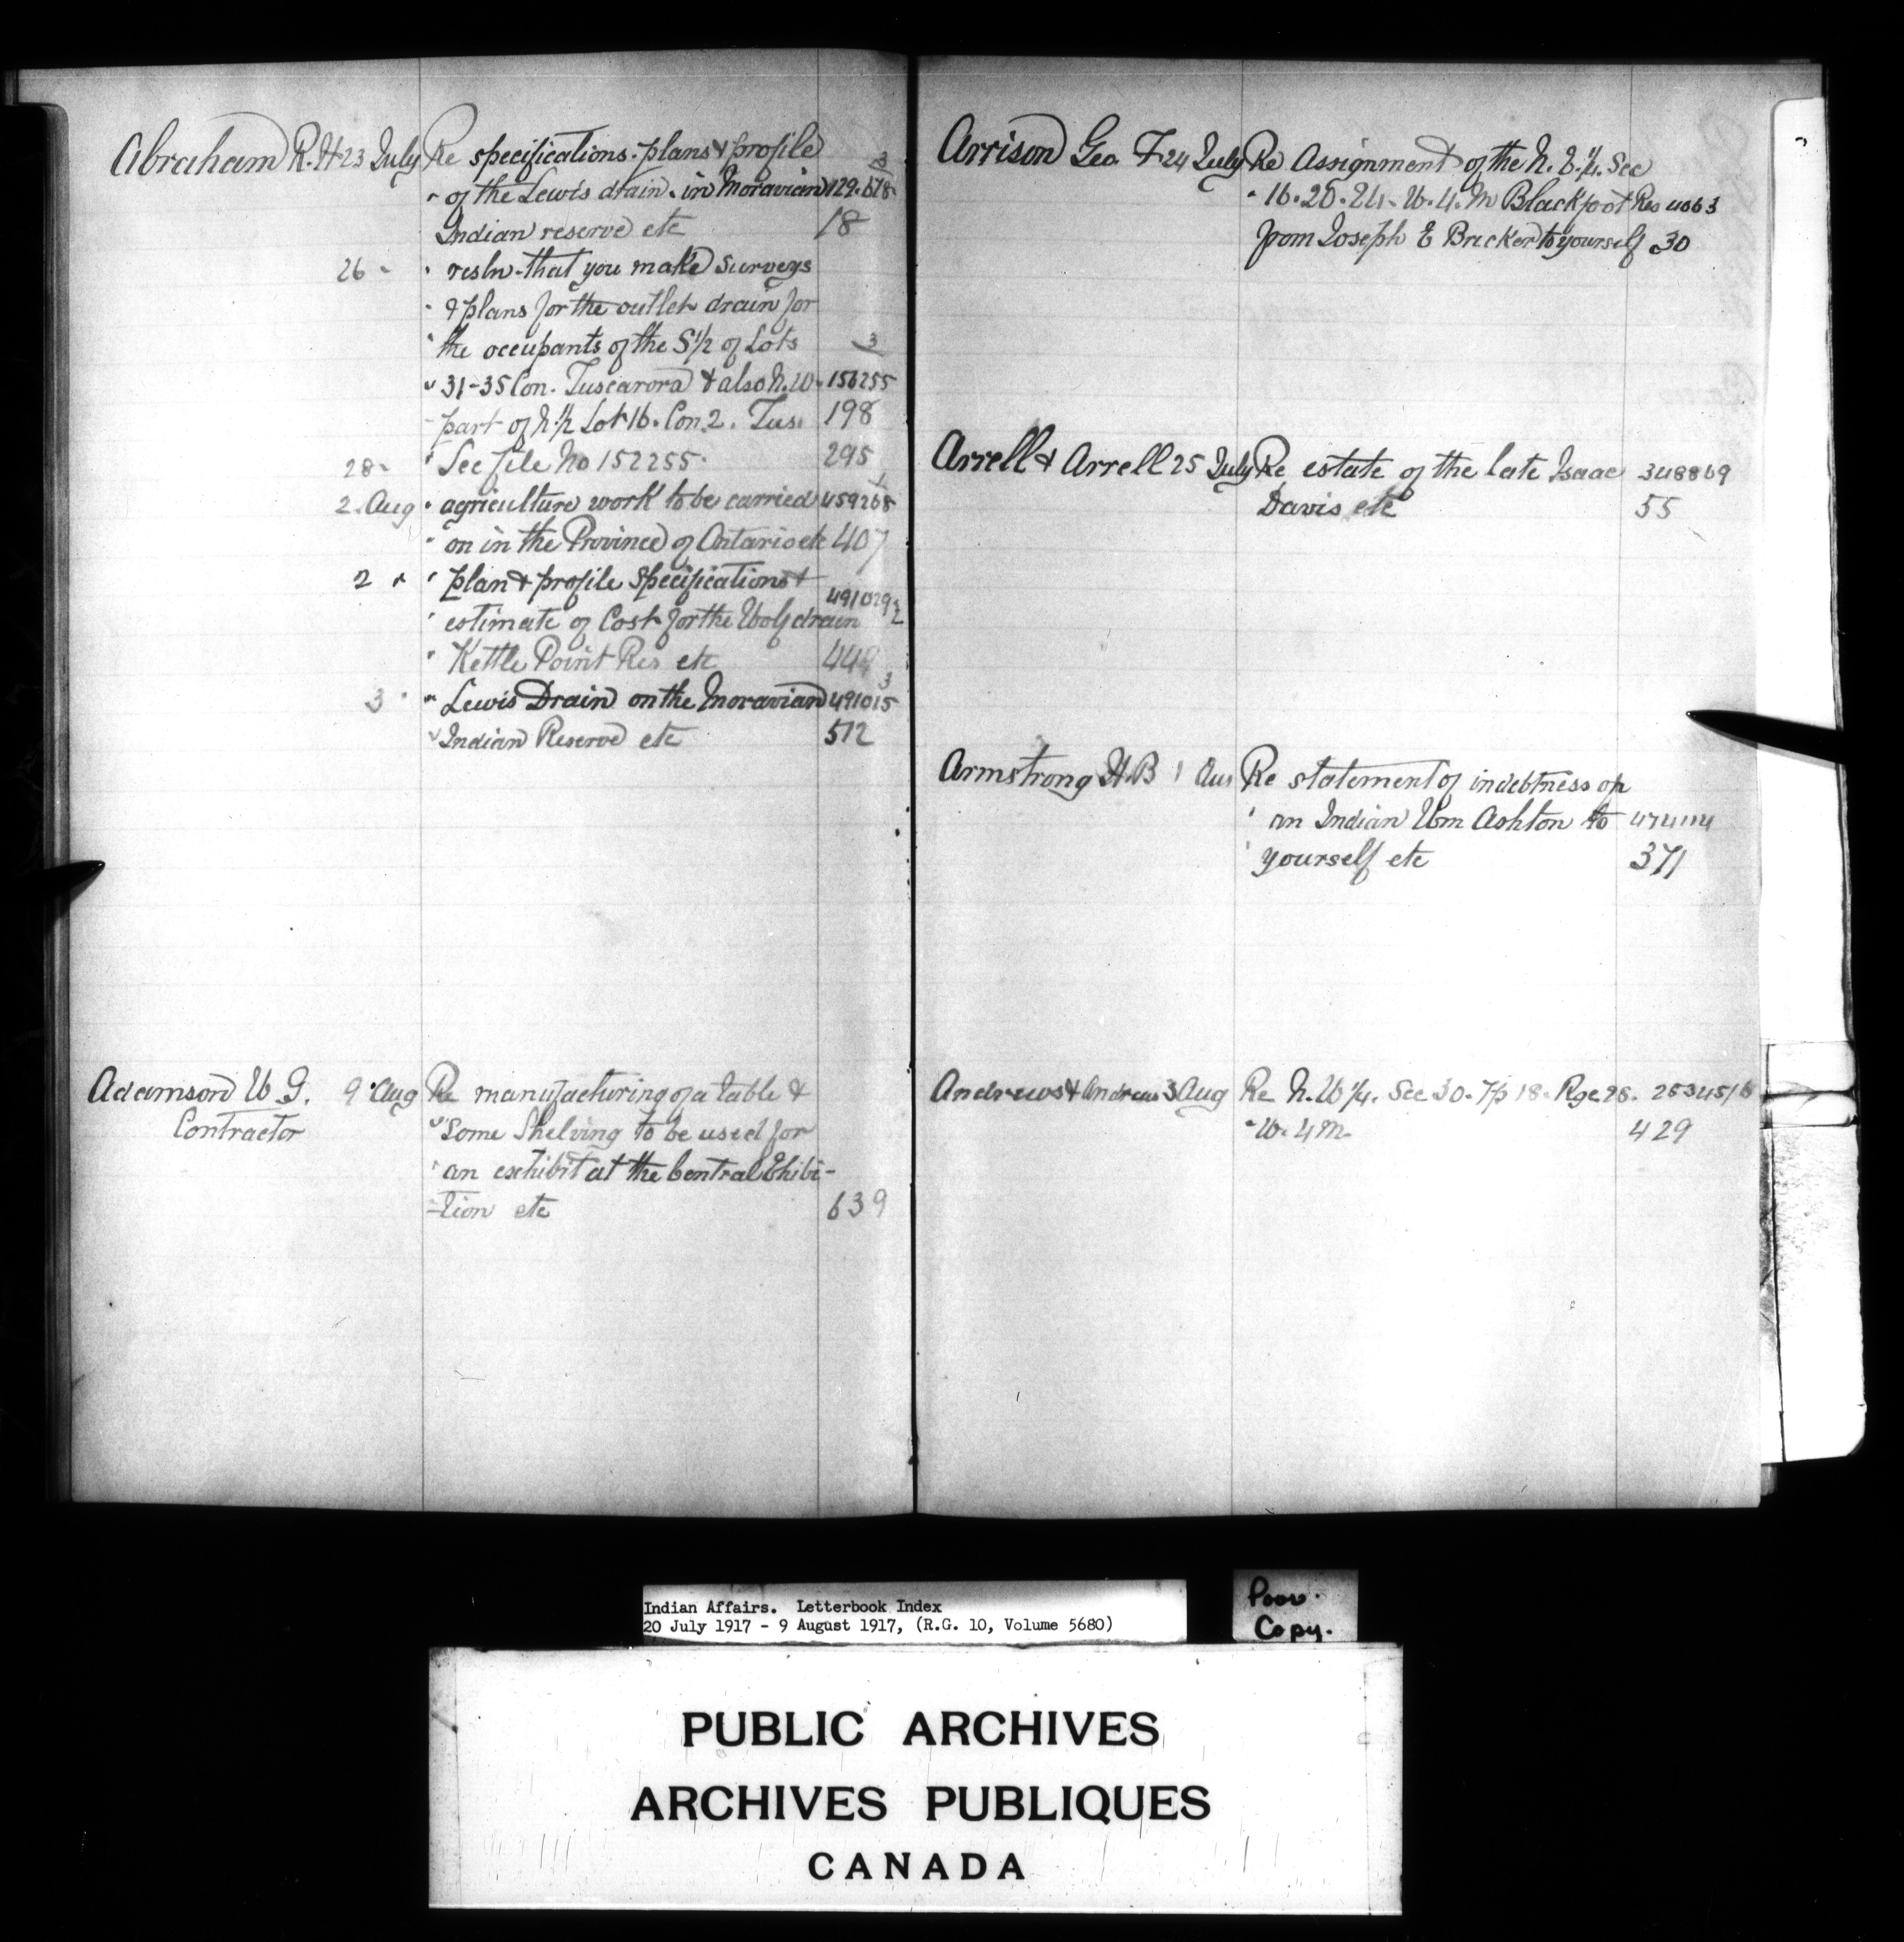 Abraham R. H 23 July Re specifications. plans & profile 3
" of the Lewis drain. in Moravian 129.678
Indian reserve etc 18
26 " " resln. that you make surveys
" & plans for the outlet drain for
" the occupants of the S 1/2 of Lots 3
" 31-35 Con. Tuscarora & also N.W. 156255
part of N. 1/2 Lot 16. Con. 2. Tus. 198
28 " " See file No 152255. 295
2. Aug " agriculture work to be carried 459268
" on in the Province of Ontario etc 407
2 " " plan & profile specifications &
" estimate of Cost for the Wolf drain 491029
" Kettle Point Res etc
3 " " Lewis Drain on the Moravian 491015
" Indian Reserve etc 512
Adamson W G. 9 Aug Re manufacturing of a table &
Contractor " Some Shelving to be used for
" an exhibit at the Central Ehibi-
-tion etc 639
Arrison Geo. F 24 July Re Assignment of the N. E. 1/4. Sec
" 16. 20. 24. W. 4. M Blackfoot Res 4063
from Joseph E Bricker to yourself 30
Arrell & Arrell 25 July Re estate of the late Isaac 348869
Davis etc 55
Armstrong H. B 1 Aug Re statement of indebtness of
" an Indian Wm Ashton to
" yourself etc 371
Andrews & Andrews 3 Aug Re N. W 1/4. Sec 30. Tp 18. Rge 28.
" W. 4 M. 429
Indian Affairs. Letterbook Index
20 July 1917 - 9 August 1917, (R.G. 10, Volume 5680)
Poor.
Copy.
PUBLIC ARCHIVES
ARCHIVES PUBLIQUES
CANADA